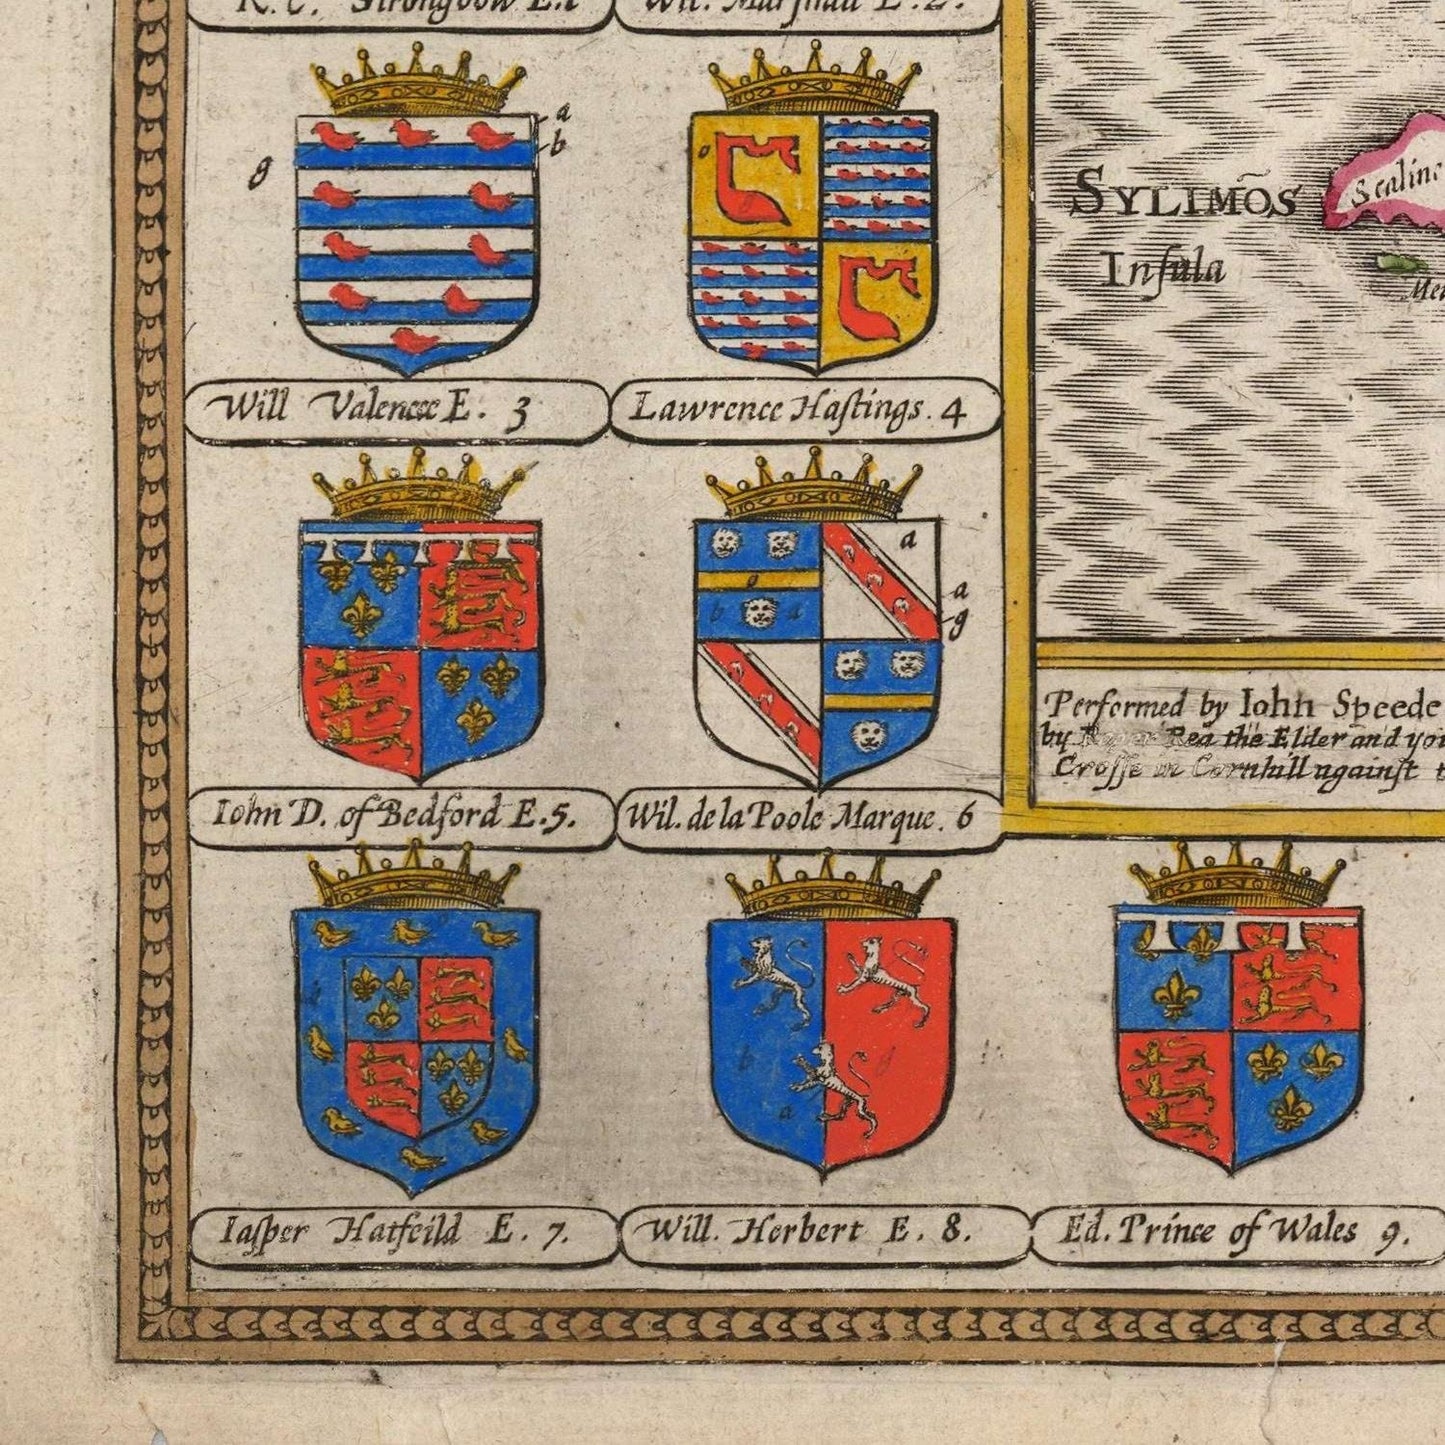 R. C. Strongbow E.1
Wil. Marshall E. 2.
a
b
g
o
Will Valence E. 3
Lawrence Hastings. 4
SYLIMO̅S
Insula
Scalme
a
o
b a
a
g
Iohn D. of Bedford E.5.
Wil. de la Poole Marque. 6
Performed by Iohn Speede
by Rea the Elder and you
Crosse in Cornhill against t
b
a
b
g
a
Iasper Hatfeild E. 7.
Will. Herbert E. 8.
Ed. Prince of Wales 9.